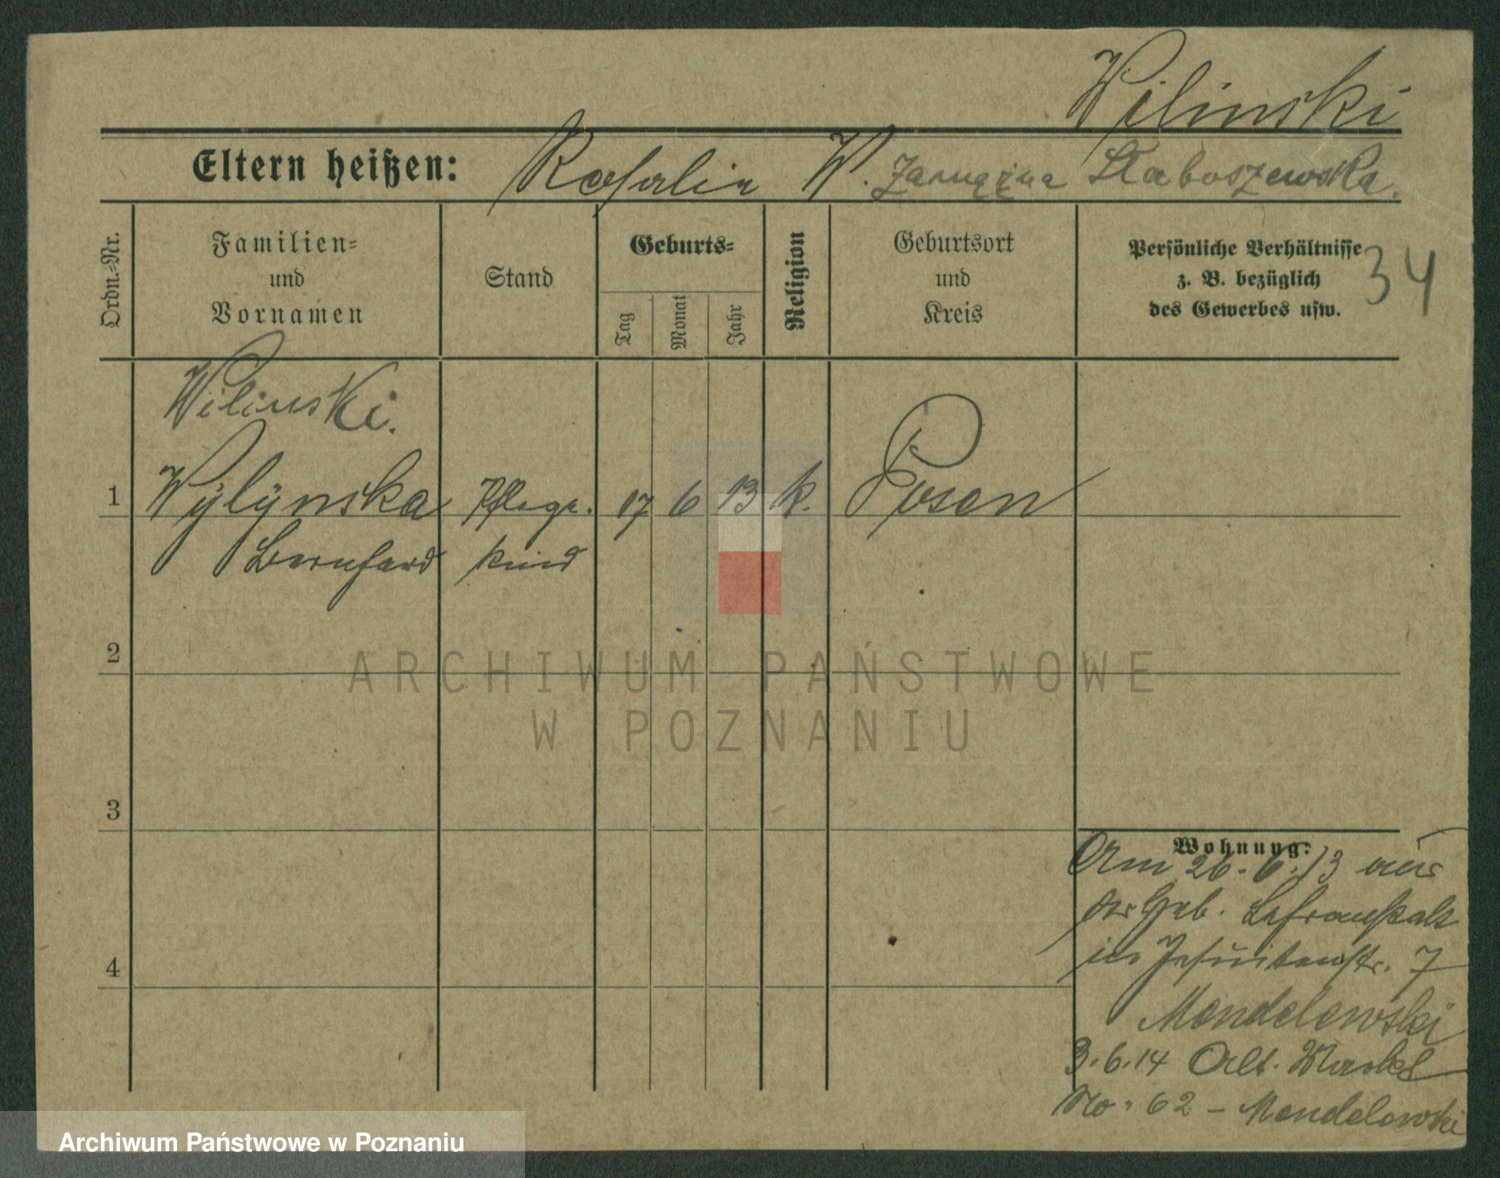 Wilinski
Eltern heißen: Rosalie W. Zamężna Staboszewska.
Ordn.-Nr.
Familien- und Vornamen
Stand
Geburts-
Tag
Monat
Jahr
Religion
Geburtsort und Kreis
Persönliche Verhältnisse
z. B. bezüglich
des Gewerbes usw.
34
Wilinski.
1 Wylynska Pflege- 17 6 13 k. Posen
Bernhard kind
2
3
4
Wohnung:
Am 26.6.13 aus
der Geb.
in Jesuitenstr. 7
Mendelewski
3.6.14 Alt. Markt
No. 62 - Mendelewski
ARCHIWUM PAŃSTWOWE
W POZNANIU
Archiwum Państwowe w Poznaniu